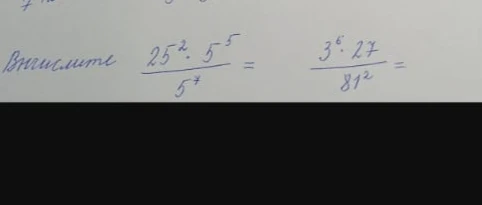 Вычислите 25² · 5⁵ / 5⁷ = 3⁶ · 27 / 81² =